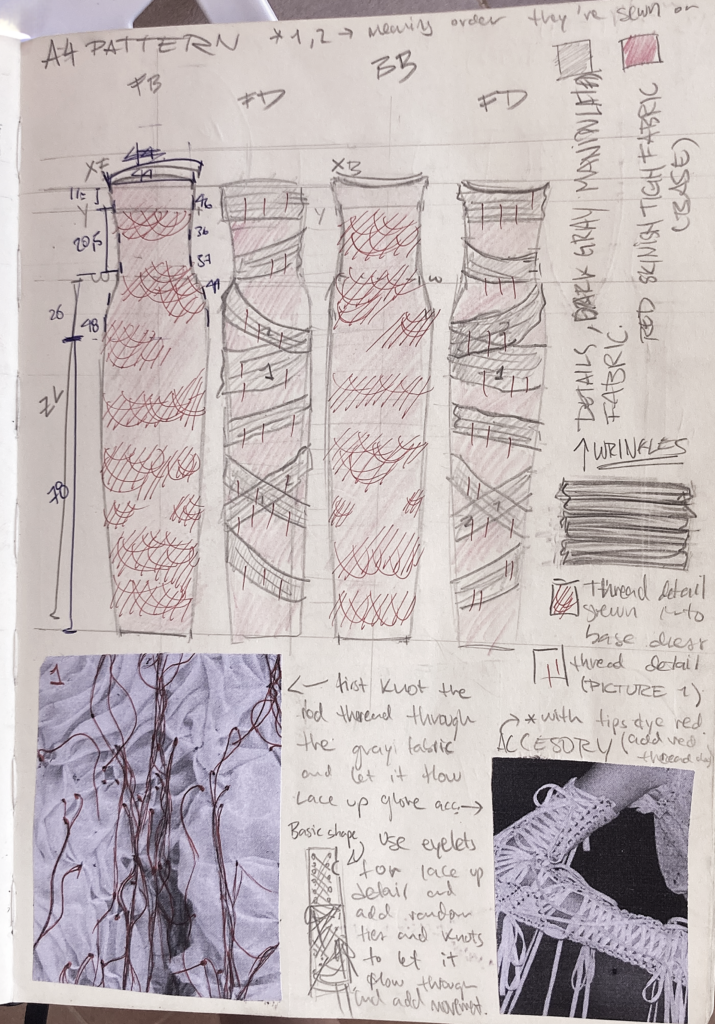 A4 PATTERN *1,2 → meaning order they're sewn on
FB
FD
BB
FD
XF
44
44
XB
11
Y
46
Y
20,5
36
37
26
48
78
1
1
DETAILS, DARK GRAY MANIPULATED
FABRIC.
RED SKINISH TIGHT FABRIC
(BASE)
↑ WRINKLES
thread detail
sewn into
base dress
thread detail
(PICTURE 1)
1
← first knot the
red thread through
the gray fabric
and let it flow
Lace up glove acc →
→ * with tips dye red.
ACCESORY (add red
thread
Basic shape
use eyelets
for lace up
detail and
add random
ties and knots
to let it
flow through
and add movement.